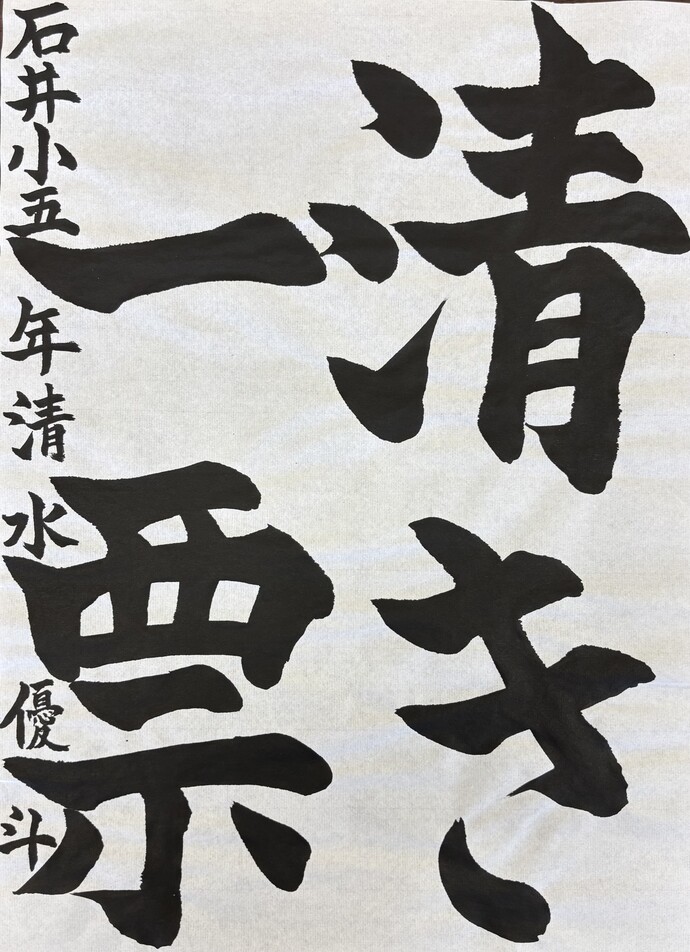 清き
一票
石井小五年清水優斗